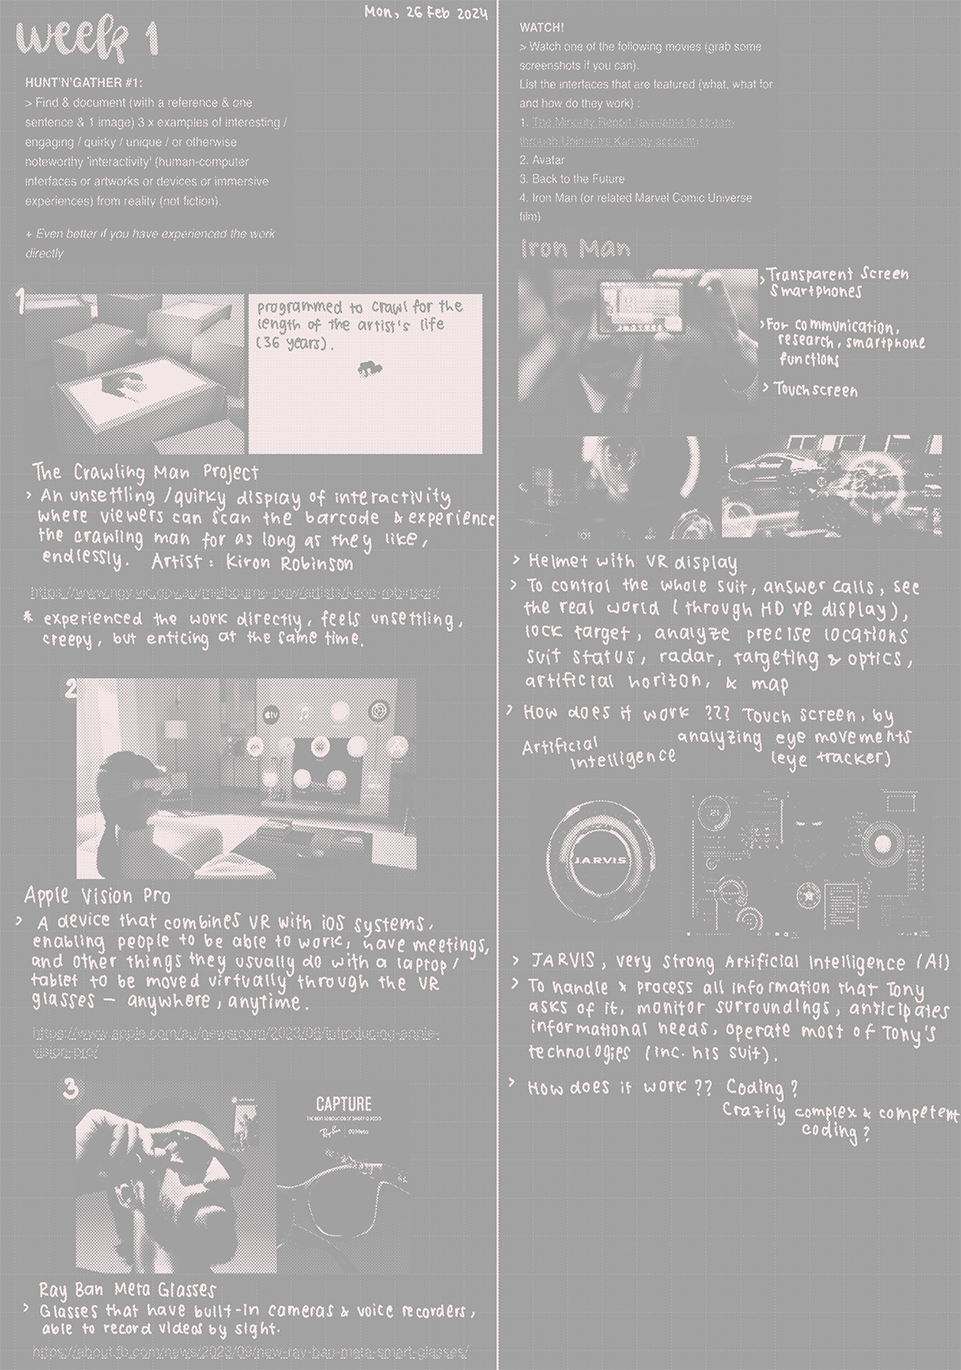 Mon, 26 Feb 2024
week 1
HUNT'N'GATHER #1:
> Find & document (with a reference & one
sentence & 1 image) 3 x examples of interesting /
engaging / quirky / unique / or otherwise
noteworthy 'interactivity' (human-computer
interfaces or artworks or devices or immersive
experiences) from reality (not fiction).
+ Even better if you have experienced the work
directly
1
programmed to crawl for the
length of the artist's life
(36 years).
The Crawling Man Project
> An unsettling / quirky display of interactivity
where viewers can scan the barcode & experience
the crawling man for as long as they like,
endlessly. Artist: Kiron Robinson
https://www.ngv.vic.gov.au/melbourne-now/artists/kiron-robinson/
* experienced the work directly, feels unsettling,
creepy, but enticing at the same time.
2
tv
Apple Vision Pro
> A device that combines VR with iOS systems,
enabling people to be able to work, have meetings,
and other things they usually do with a laptop/
tablet to be moved virtually through the VR
glasses — anywhere, anytime.
https://www.apple.com/au/newsroom/2023/06/introducing-apple-
vision-pro/
3
CAPTURE
THE NEXT GENERATION OF SMART GLASSES
Ray-Ban | Meta
Ray Ban Meta Glasses
> Glasses that have built-in cameras & voice recorders,
able to record videos by sight.
https://about.fb.com/news/2023/09/new-ray-ban-meta-smart-glasses/
WATCH!
> Watch one of the following movies (grab some
screenshots if you can).
List the interfaces that are featured (what, what for
and how do they work) :
1. The Minority Report (available to stream
through Unimelb's Kanopy account)
2. Avatar
3. Back to the Future
4. Iron Man (or related Marvel Comic Universe
film)
Iron Man
> Transparent Screen
Smartphones
> For communication,
research, smartphone
functions
> Touchscreen
> Helmet with VR display
> To control the whole suit, answer calls, see
the real world (through HD VR display),
lock target, analyze precise locations
suit status, radar, targeting & optics,
artificial horizon, & map
> How does it work ??? Touch screen, by
analyzing eye movements
(eye tracker)
Artificial
Intelligence
J.A.R.V.I.S.
21
> JARVIS, very strong Artificial Intelligence (AI)
> To handle & process all information that Tony
asks of it, monitor surroundings, anticipates
informational needs, operate most of Tony's
technologies (inc. his suit).
> How does it work ?? Coding?
Crazily complex & competent
coding?